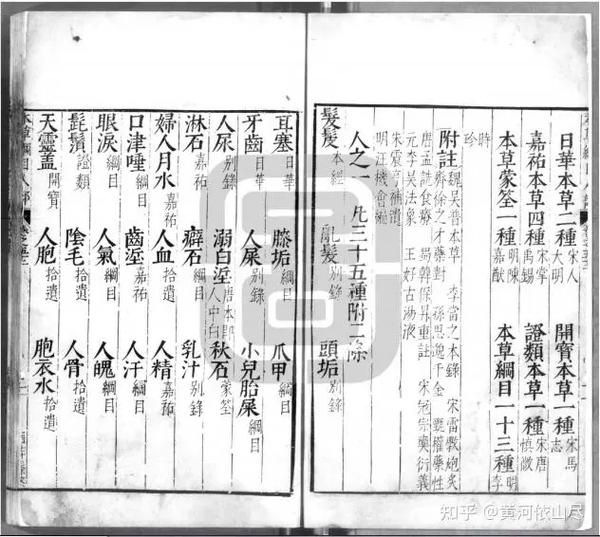 日華本草二種宋人大明　開寶本草一種宋馬志
嘉祐本草四種宋掌禹錫　證類本草一種宋唐慎微
本草蒙筌一種明陳嘉猷　本草綱目一十三種明李
時珍
附註魏吳普本草　李當之本錄　宋雷斅炮炙
齊徐之才藥對　孫思邈千金　甄權藥性
唐孟詵食療　蜀韓保昇重註　宋寇宗奭衍義
元李杲法象　王好古湯液
宋震亨補遺
明汪機會編
人之一　凡三十五種附二條
髮髲本經　亂髮別錄　頭垢別錄
耳塞日華　膝垢綱目　爪甲綱目
牙齒日華　人屎別錄　小兒胎屎綱目
人尿別錄　溺白垽唐本即人中白　秋石蒙筌
淋石嘉祐　癖石綱目　乳汁別錄
婦人月水嘉祐　人血拾遺　人精嘉祐
口津唾綱目　齒垽嘉祐　人汗綱目
眼淚綱目　人氣綱目　人魄綱目
髭鬚證類　陰毛拾遺　人骨拾遺
天靈蓋開寶　人胞拾遺　胞衣水拾遺
本草綱目人部
知乎 @黄河依山尽